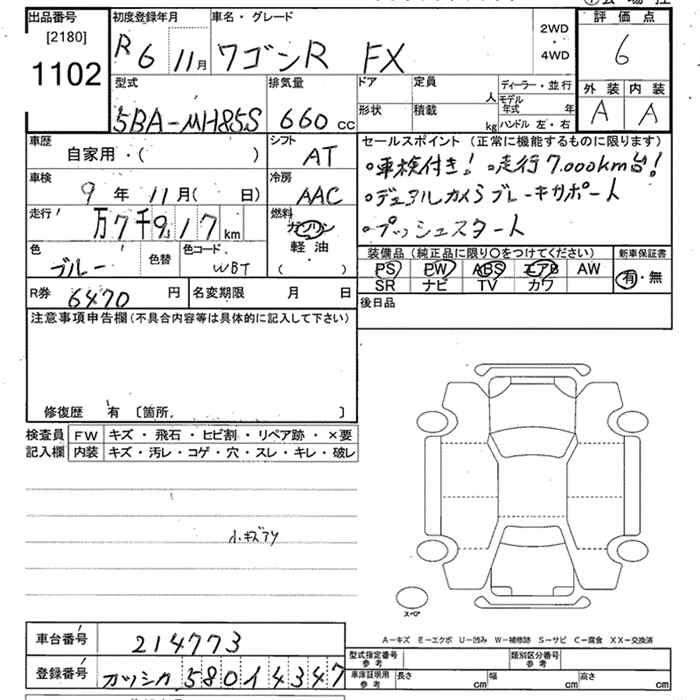 出品番号
[2180]
1102
初度登録年月
R6 11月
車名・グレード
ワゴンR FX
2WD
・
4WD
評価点
6
外装 内装
A A
型式
5BA-MH85S
排気量
660 cc
ドア
形状
定員
人
積載
kg
ディーラー・並行
モデル年式 年
ハンドル 左・右
車歴
自家用・( )
シフト
AT
車検
9年 11月( 日)
冷房
AAC
走行
万7千917km
燃料
ガソリン
軽油
( )
色
ブルー
色替
色コード
WBT
セールスポイント (正常に機能するものに限ります)
○車検付き! ○走行7,000km台!
○デュアルカメラブレーキサポート
○プッシュスタート
装備品 (純正品に限り○をつけてください)
PS PW ABS エアB AW
SR ナビ TV カワ
新車保証書
有・無
R券 6470 円
名変期限 月 日
後日品
注意事項申告欄(不具合内容等は具体的に記入して下さい)
修復歴 有 〔箇所, 〕
検査員記入欄
FW キズ・飛石・ヒビ割・リペア跡・×要
内装 キズ・汚レ・コゲ・穴・スレ・キレ・破レ
小キズアリ
スペア
A－キズ E－エクボ U－凹み W－補修跡 S－サビ C－腐食 XX－交換済
車台番号 214773
登録番号 カツシカ 580 イ 4347
型式指定番号 参考
類別区分番号 参考
車庫証明用 参考
長さ cm 幅 cm 高さ cm